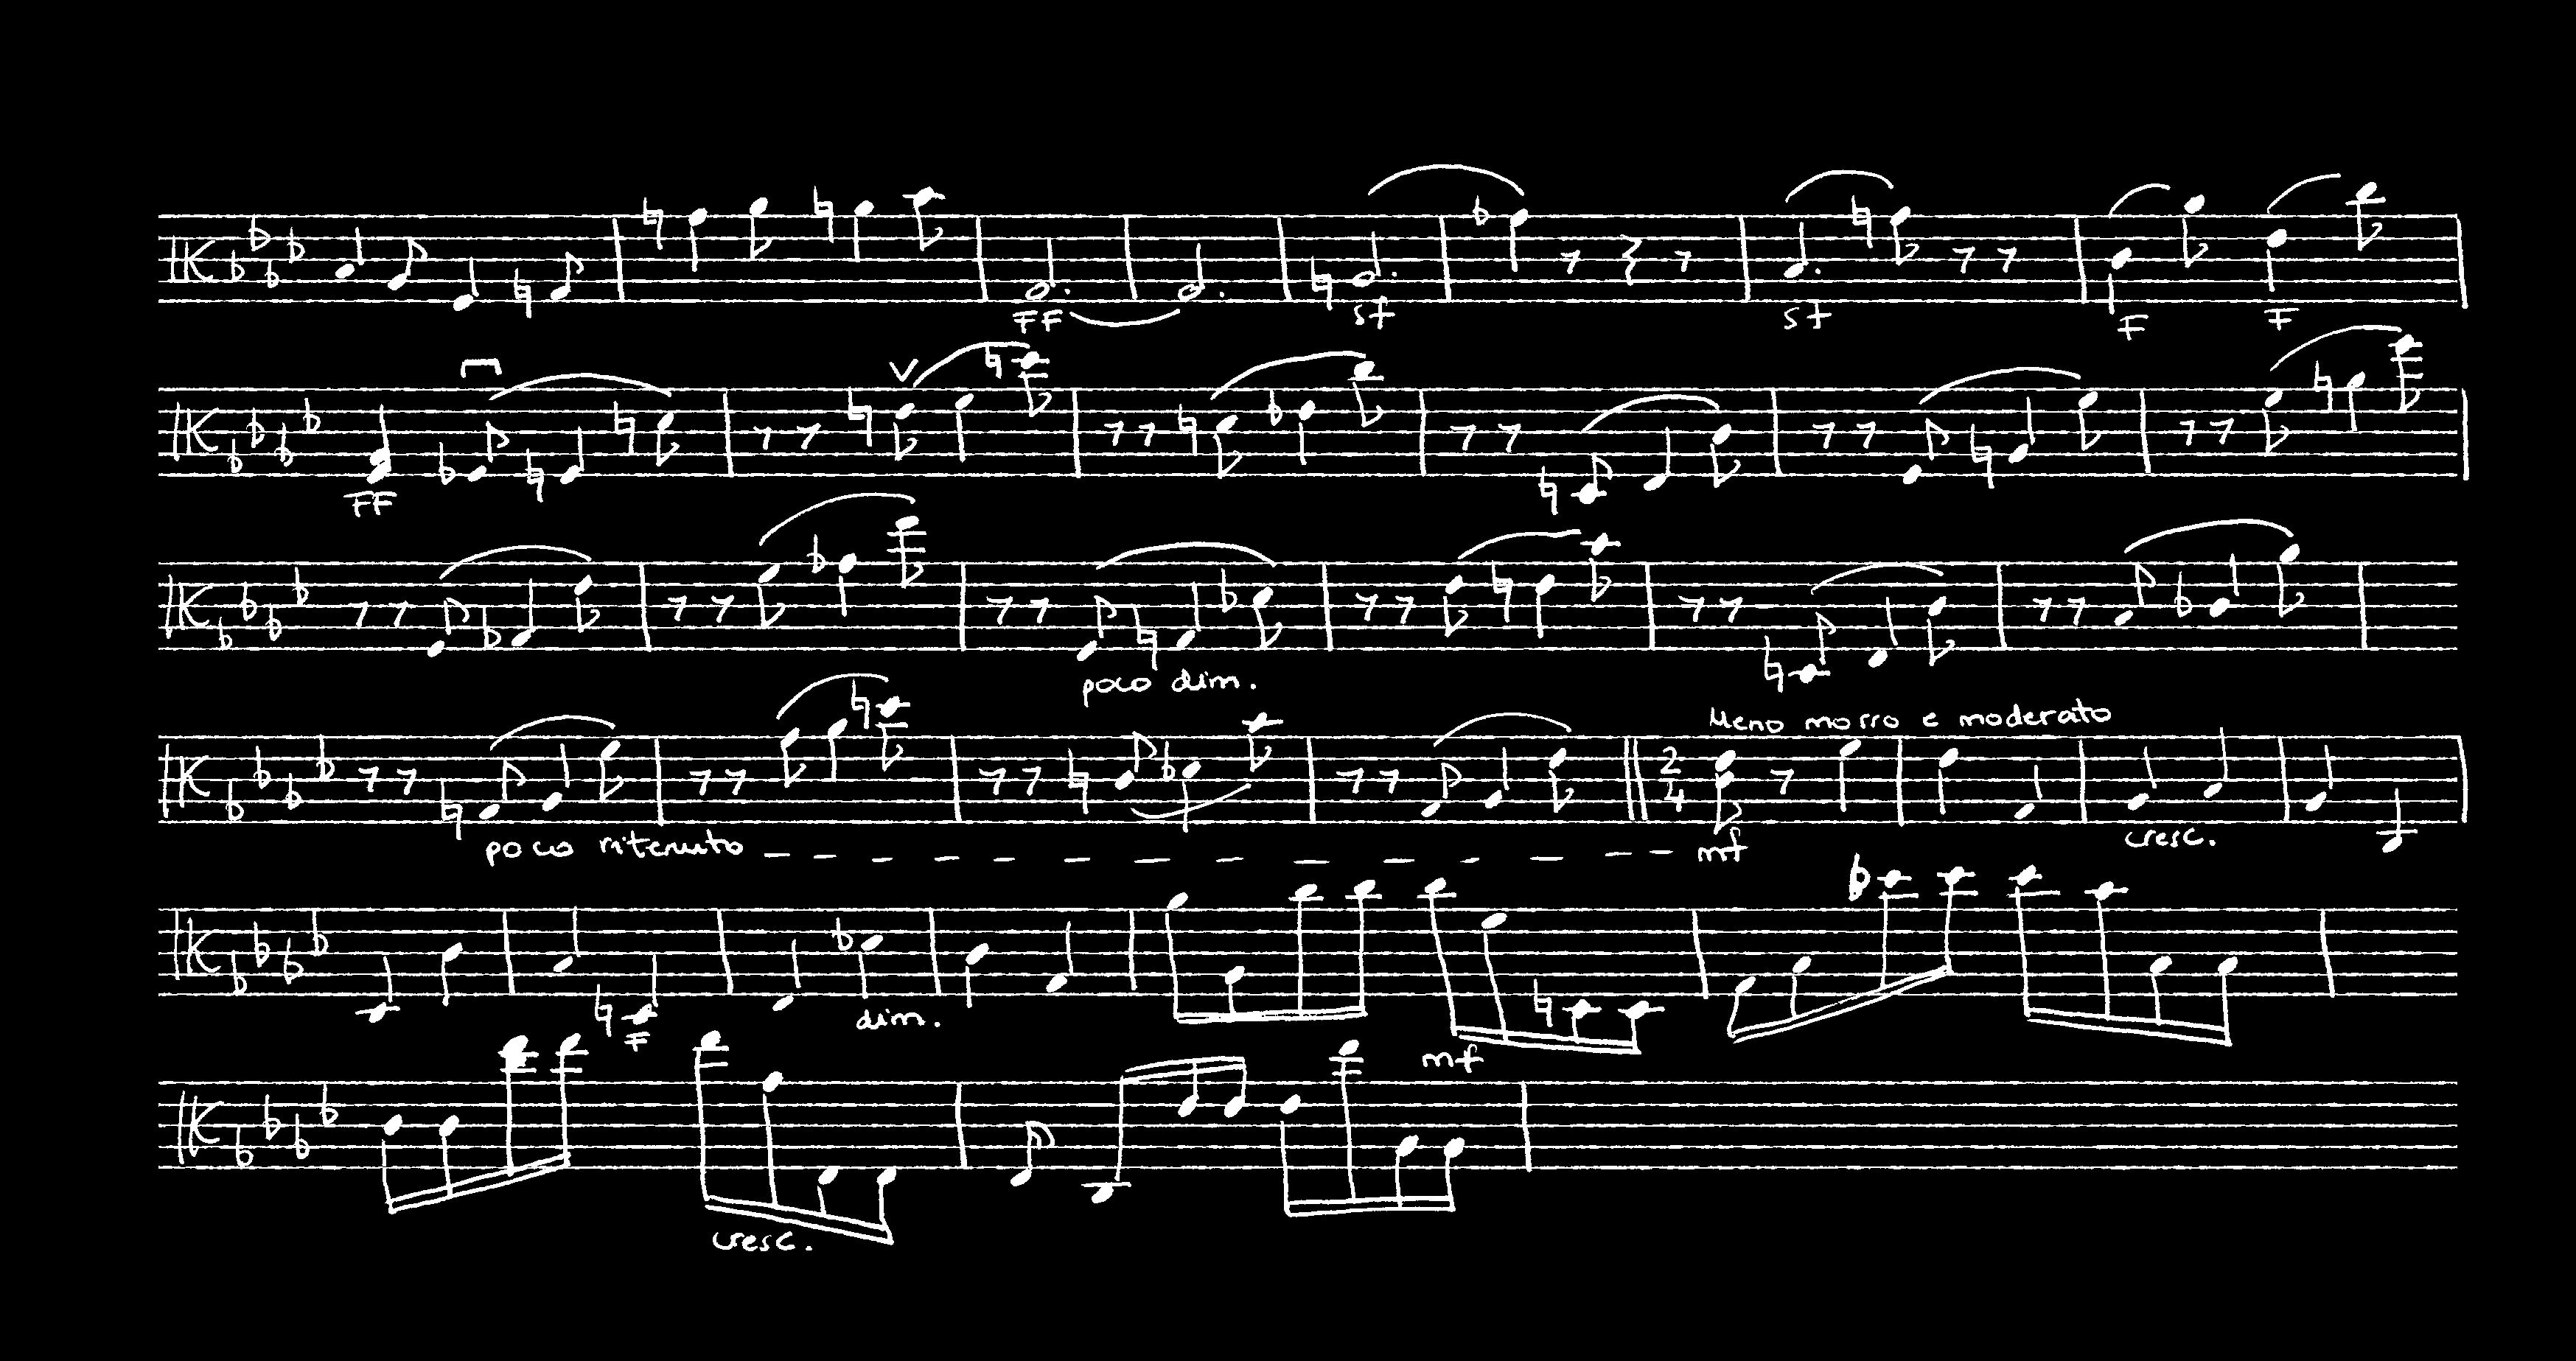 FF sf sf F F
FF
poco dim.
Meno mosso e moderato
2/4
poco ritenuto mf
cresc.
F dim. mf
cresc.